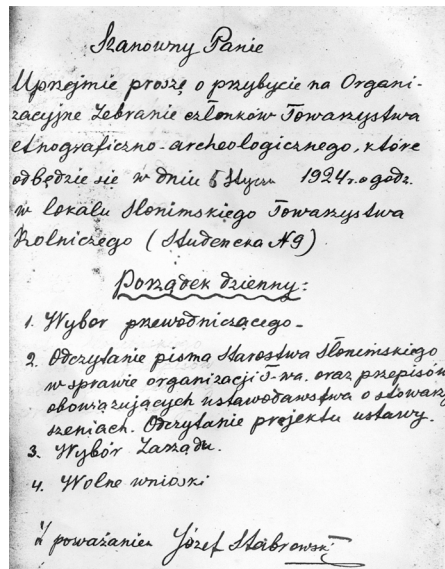 Szanowny Panie
Uprzejmie proszę o przybycie na Organi-
zacyjne Zebranie członków Towarzystwa
etnograficzno-archeologicznego, które
odbędzie się w dniu 5 stycz 1924 r. o godz.
w lokalu Słonimskiego Towarzystwa
Rolniczego (Studencka N9)
Porządek dzienny:
1. Wybor przewodniczącego-
2. Odczytanie pisma Starostwa Słonimskiego
w sprawie organizacji T-wa. oraz przepisów
obowiązujących ustawodawstwa o stowarzy
szeniach. Odczytanie projektu ustawy.
3. Wybór Zarządu.
4. Wolne wnioski
Z poważaniem Józef Stabrowski